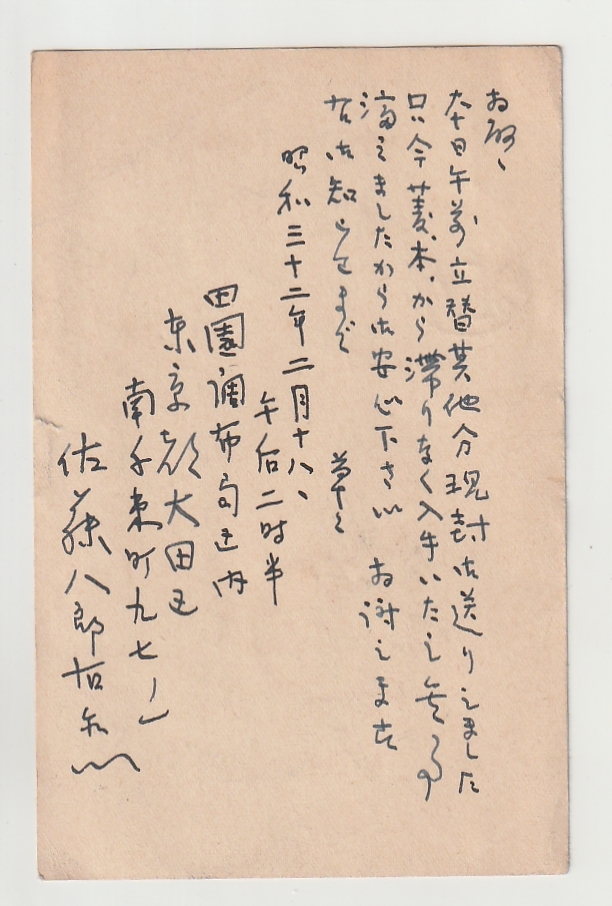 本日午前立替其他分現封御送りしました
只今菱本から滞りなく入手いたし無事
済みましたから御安心下さい お謝します
右御知らせまで 草々
昭和三十二年二月十八、
午后二时半
田園調布局区内
東京都大田区
南千束町九七ノ
佐藤八郎